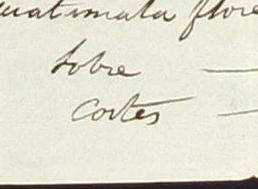 uatimala flore
sobre —
cortes —